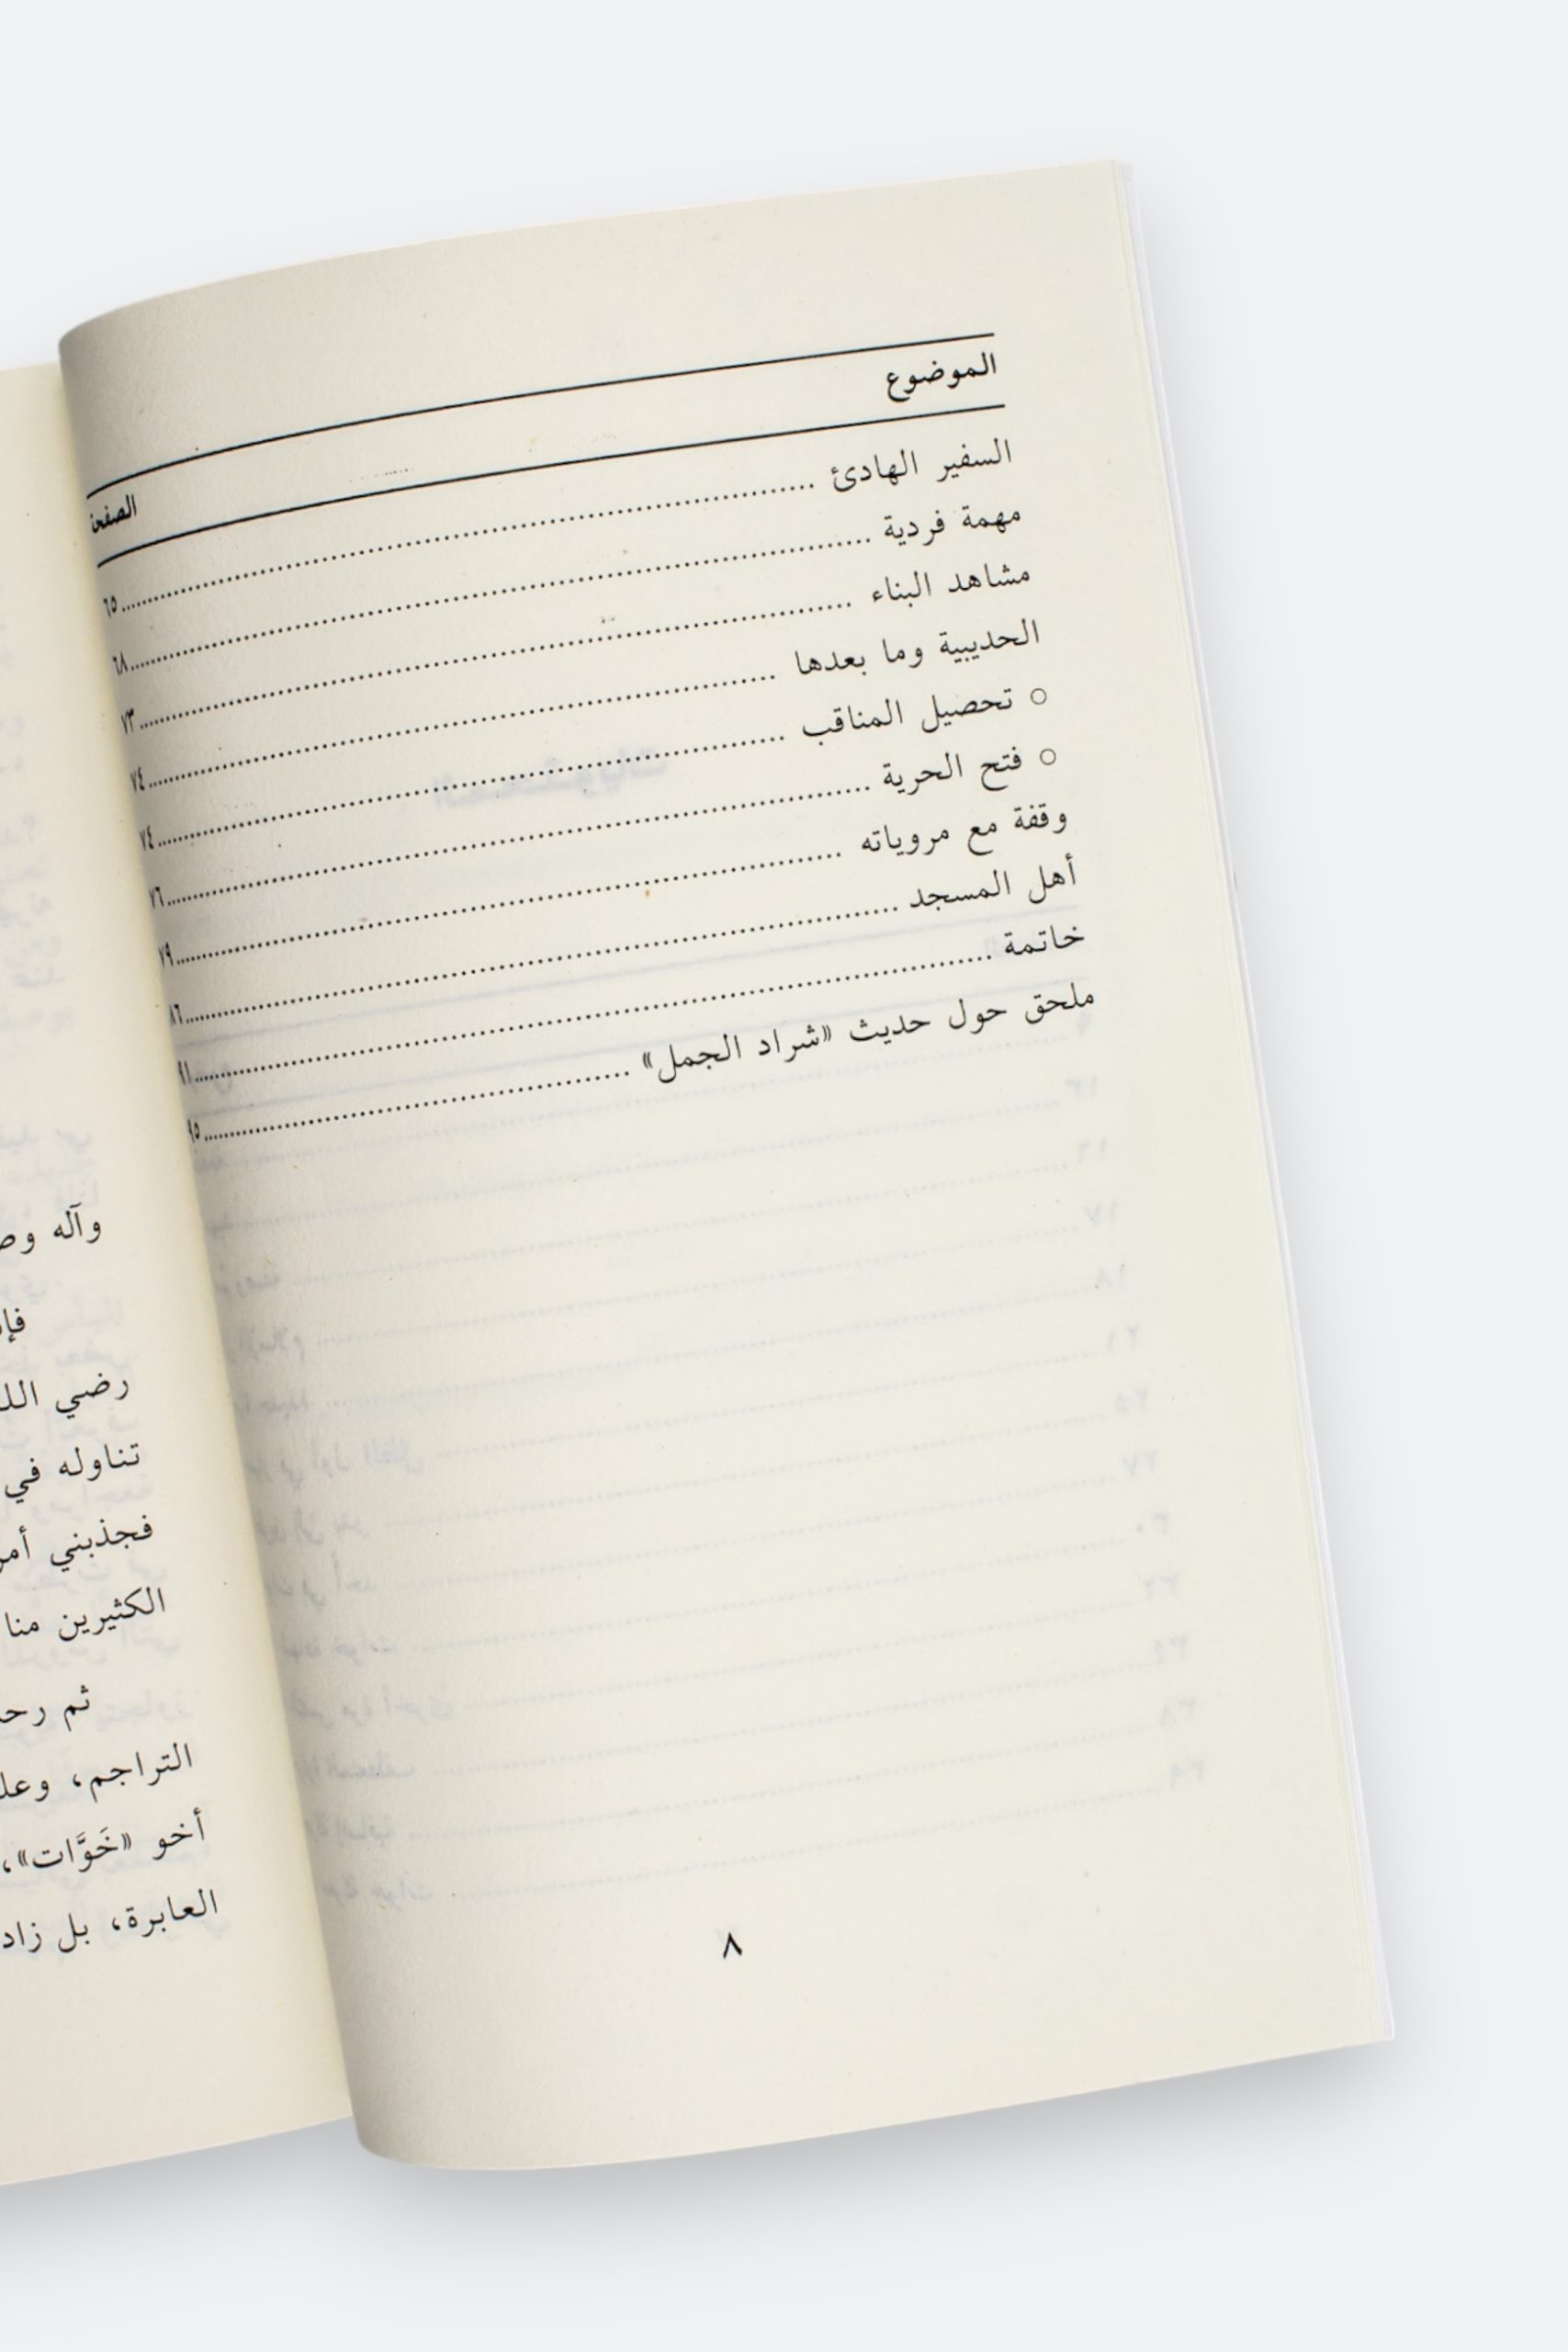 الموضوع الصفحة
السفير الهادئ ........ ٦٥
مهمة فردية ........ ٦٨
مشاهد البناء ........ ٧٣
الحديبية وما بعدها ........ ٧٤
○ تحصيل المناقب ........ ٧٤
○ فتح الحرية ........ ٧٦
وقفة مع مروياته ........ ٧٩
أهل المسجد ........ ٨٦
خاتمة ........ ٩١
ملحق حول حديث «شراد الجمل» ........ ٩٥
٨
وآله
رضي
تناوله في
فجذبني
الكثيرين منا
ثم
التراجم،
أخو «خَوَّات»،
العابرة، بل